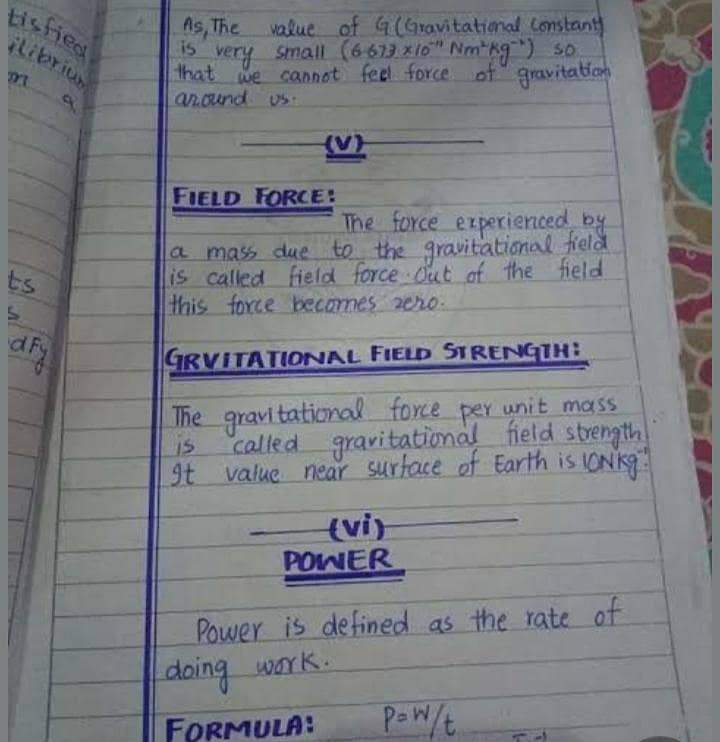 tisfied
ilibrium
on a
ts
s
dFy
As, The value of G (Gravitational Constant)
is very small (6.673 x10⁻¹¹ Nm²kg⁻²) so
that we cannot feel force of gravitation
around us.
(V)
FIELD FORCE:
The force experienced by
a mass due to the gravitational field
is called field force. Out of the field
this force becomes zero.
GRVITATIONAL FIELD STRENGTH:
The gravitational force per unit mass
is called gravitational field strength
It value near surface of Earth is 10NKg⁻¹.
(vi)
POWER
Power is defined as the rate of
doing work.
FORMULA: P=W/t